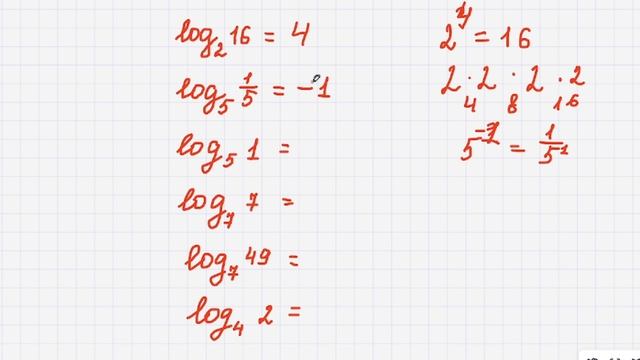 log₂ 16 = 4
log₅ 1/5 = -1
log₅ 1 =
log₇ 7 =
log₇ 49 =
log₄ 2 =
2⁴ = 16
2 · 2 · 2 · 2
4 8 16
5⁻¹ = 1/5¹